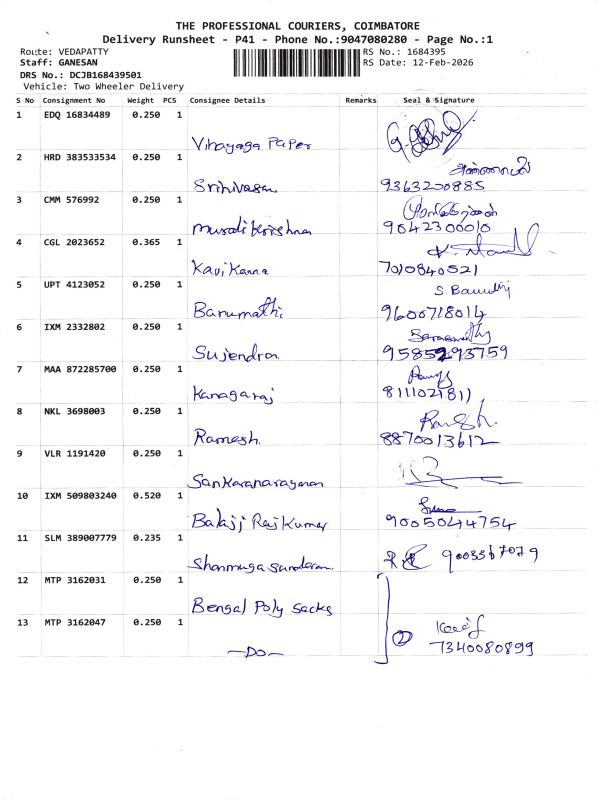 THE PROFESSIONAL COURIERS, COIMBATORE
Delivery Runsheet - P41 - Phone No.:9047080280 - Page No.:1
Route: VEDAPATTY RS No.: 1684395
Staff: GANESAN RS Date: 12-Feb-2026
DRS No.: DCJB168439501
Vehicle: Two Wheeler Delivery
S No Consignment No Weight PCS Consignee Details Remarks Seal & Signature
1 EDQ 16834489 0.250 1
Vinayaga Paper
2 HRD 383533534 0.250 1
Srinivasan 9363200885
3 CMM 576992 0.250 1
Murali Krishnan 9042300010
4 CGL 2023652 0.365 1
Kavi Kanna 7010840521
5 UPT 4123052 0.250 1 S. Banu
Banumathi 9600718014
6 IXM 2332802 0.250 1
Sujendran 9585293759
7 MAA 872285700 0.250 1
Kanagaraj 8111021811
8 NKL 3698003 0.250 1
Ramesh 8870013612
9 VLR 1191420 0.250 1
Sankaranarayanan
10 IXM 509803240 0.520 1
Balaji Rajkumar 9005044754
11 SLM 389007779 0.235 1
Shanmuga Sundaram 9003367079
12 MTP 3162031 0.250 1
Bengal Poly Sacks
13 MTP 3162047 0.250 1 2
—Do— 7340080899